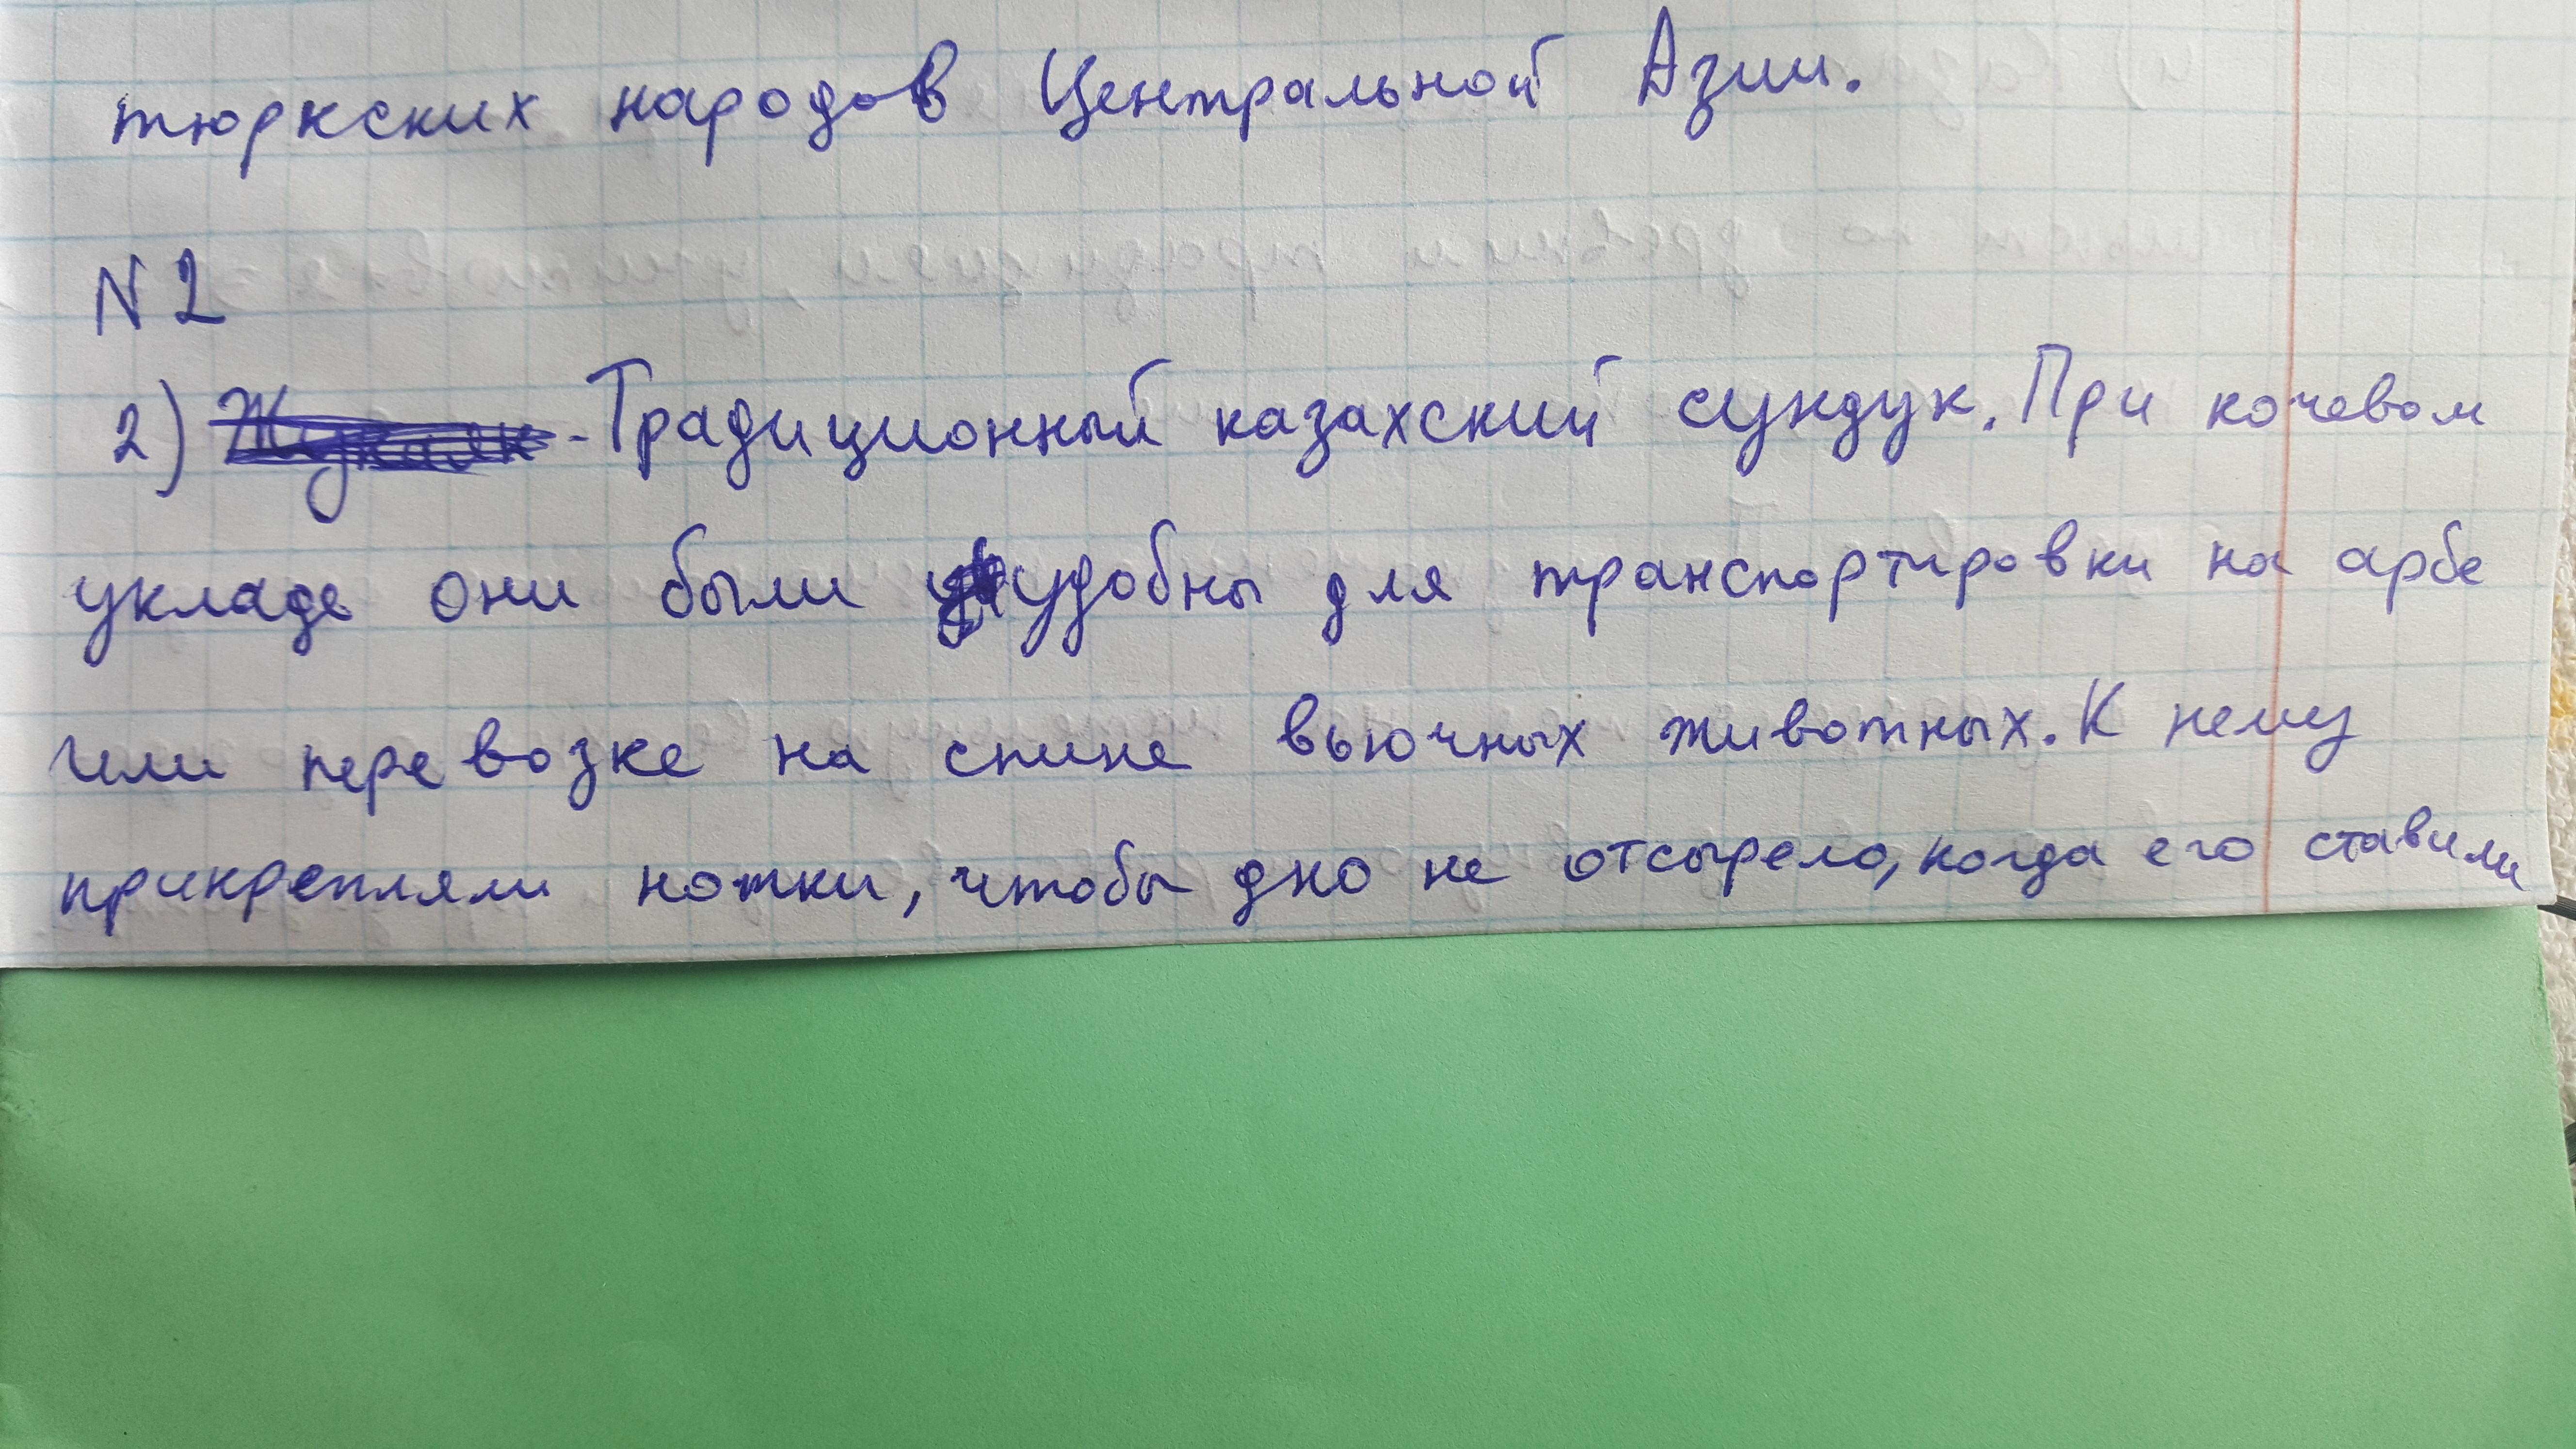 тюркских народов Центральной Азии.
N 2
2) - Традиционный казахский сундук. При кочевом
укладе они были удобны для транспортировки на арбе
или перевозке на спине вьючных животных. К нему
прикрепляли ножки, чтобы дно не отсырело, когда его ставили